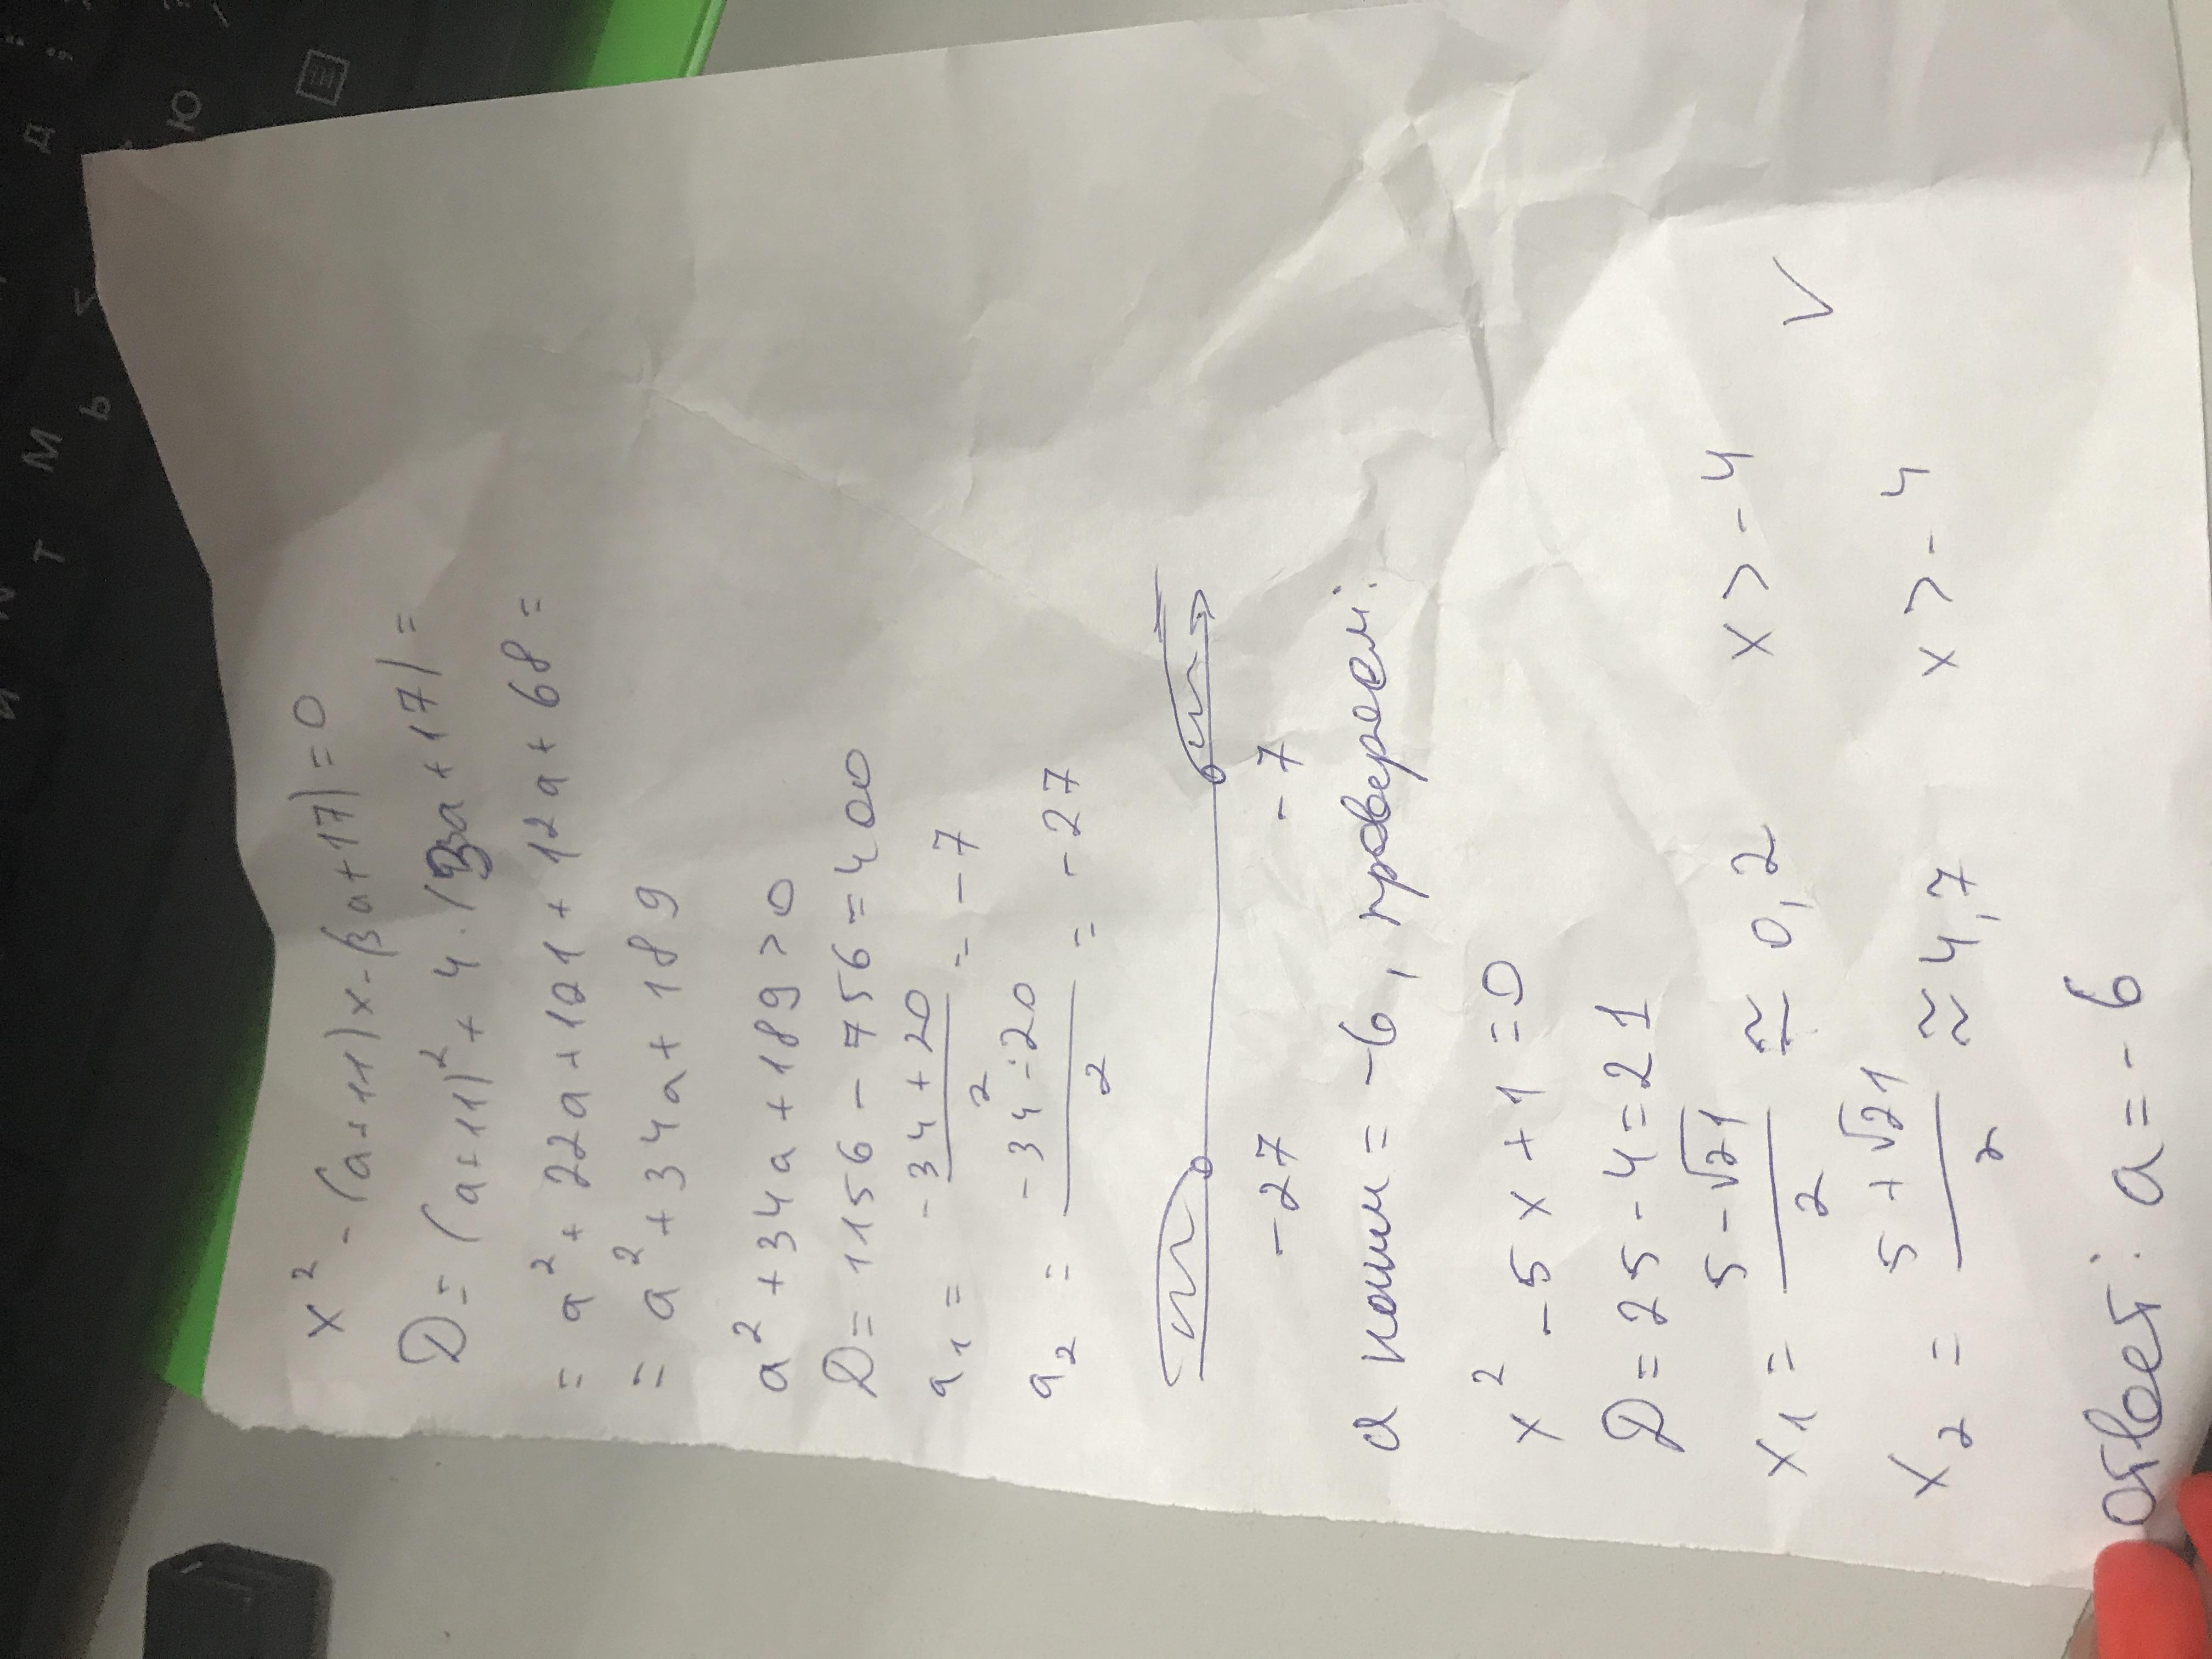 x² - (a+11)x - (3a+17) = 0
D = (a+11)² + 4·(3a+17) =
= a² + 22a + 121 + 12a + 68 =
= a² + 34a + 189
a² + 34a + 189 > 0
D = 1156 - 756 = 400
a₁ = (-34+20)/2 = -7
a₂ = (-34-20)/2 = -27
-27 -7
a наим = -6, проверяем:
x² - 5x + 1 = 0
D = 25 - 4 = 21
x₁ = (5-√21)/2 ≈ 0,2 x > -4 V
x₂ = (5+√21)/2 ≈ 4,7 x > -4
Ответ: a = -6
Д
Ю
Ь
М
Т